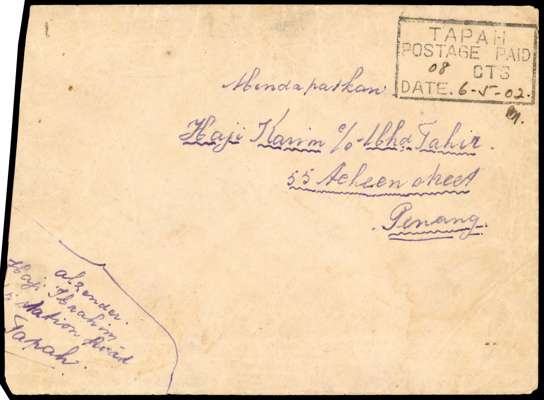 TAPAH
POSTAGE PAID
08 CTS
DATE. 6-5-02.
Mendapatkan
Haji Karim c/o Mhd Tahir.
55 Acheen street
Penang.
afzender.
Haji Ibrahim
Station Road
Tapah.